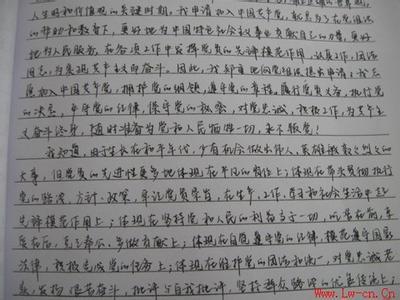 人生观和价值观的关键时期,我申请加入中国共产党,就是为了在党组织
的帮助和教育下,更好地为中国特色社会主义事业贡献自己的力量,更好
地为人民服务,在各项工作中发挥党员的先锋模范作用,认真工作,团结
同志,为实现共产主义而奋斗。因此,我郑重地向党组织提出申请:我志
愿加入中国共产党,拥护党的纲领,遵守党的章程,履行党员义务,执行党
的决定,严守党的纪律,保守党的秘密,对党忠诚,积极工作,为共产主
义奋斗终身,随时准备为党和人民牺牲一切,永不叛党!
我知道,由于生长在和平年代,少有机会做出伟人、英雄般轰轰烈烈的
大事,但党员的先进性更多地体现在平凡的岗位上:体现在带头贯彻执行
党的路线、方针、政策,牢记党员荣誉,在生产、工作、学习和社会生活中起
先锋模范作用上;体现在坚持党和人民的利益高于一切,吃苦在前,享
受在后,克己奉公,多做贡献上;体现在自觉遵守党的纪律,模范遵守国家
法律,积极完成党的任务上;体现在维护党的团结和统一,对党忠诚老
实,发扬 艰苦奋斗,批评与自我批评,坚持群众路线的优良传统上;
Lw-cn.Cn